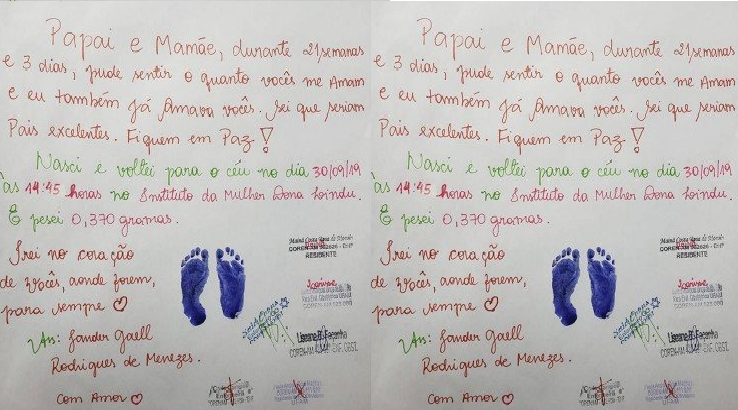 Papai e Mamãe, durante 21 semanas
e 3 dias, pude sentir o quanto vocês me Amam
e eu também já Amava vocês. Sei que seriam
Pais excelentes. Fiquem em Paz!
Nasci e voltei para o céu no dia 30/09/19
às 14:45 horas no Instituto da Mulher Dona Lindu.
E pesei 0,370 gramas.
Irei no coração
de vocês, aonde forem,
para sempre
Ass: Sander Gaell
Rodrigues de Menezes.
Com Amor
RESIDENTE
Papai e Mamãe, durante 21 semanas
e 3 dias, pude sentir o quanto vocês me Amam
e eu também já Amava vocês. Sei que seriam
Pais excelentes. Fiquem em Paz!
Nasci e voltei para o céu no dia 30/09/19
às 14:45 horas no Instituto da Mulher Dona Lindu.
E pesei 0,370 gramas.
Irei no coração
de vocês, aonde forem,
para sempre
Ass: Sander Gaell
Rodrigues de Menezes.
Com Amor
RESIDENTE